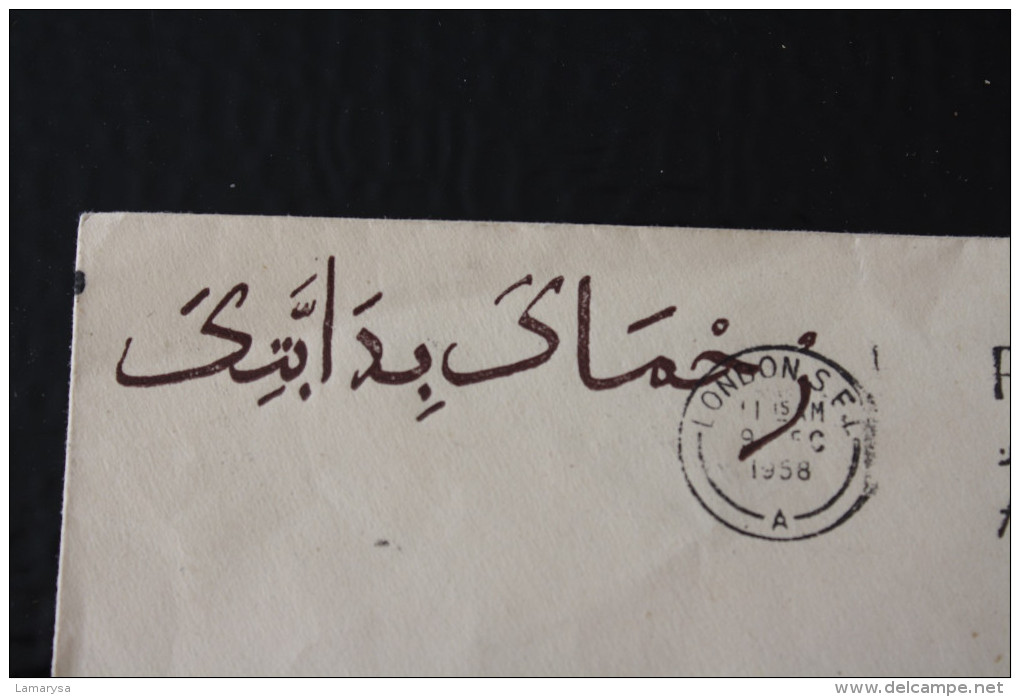 رُحْمَاىَ بِدَابَّتِىَ
LONDON. S.E.1.
11 15 AM
9 DEC
1958
A
Lamarysa
www.delcampe.net